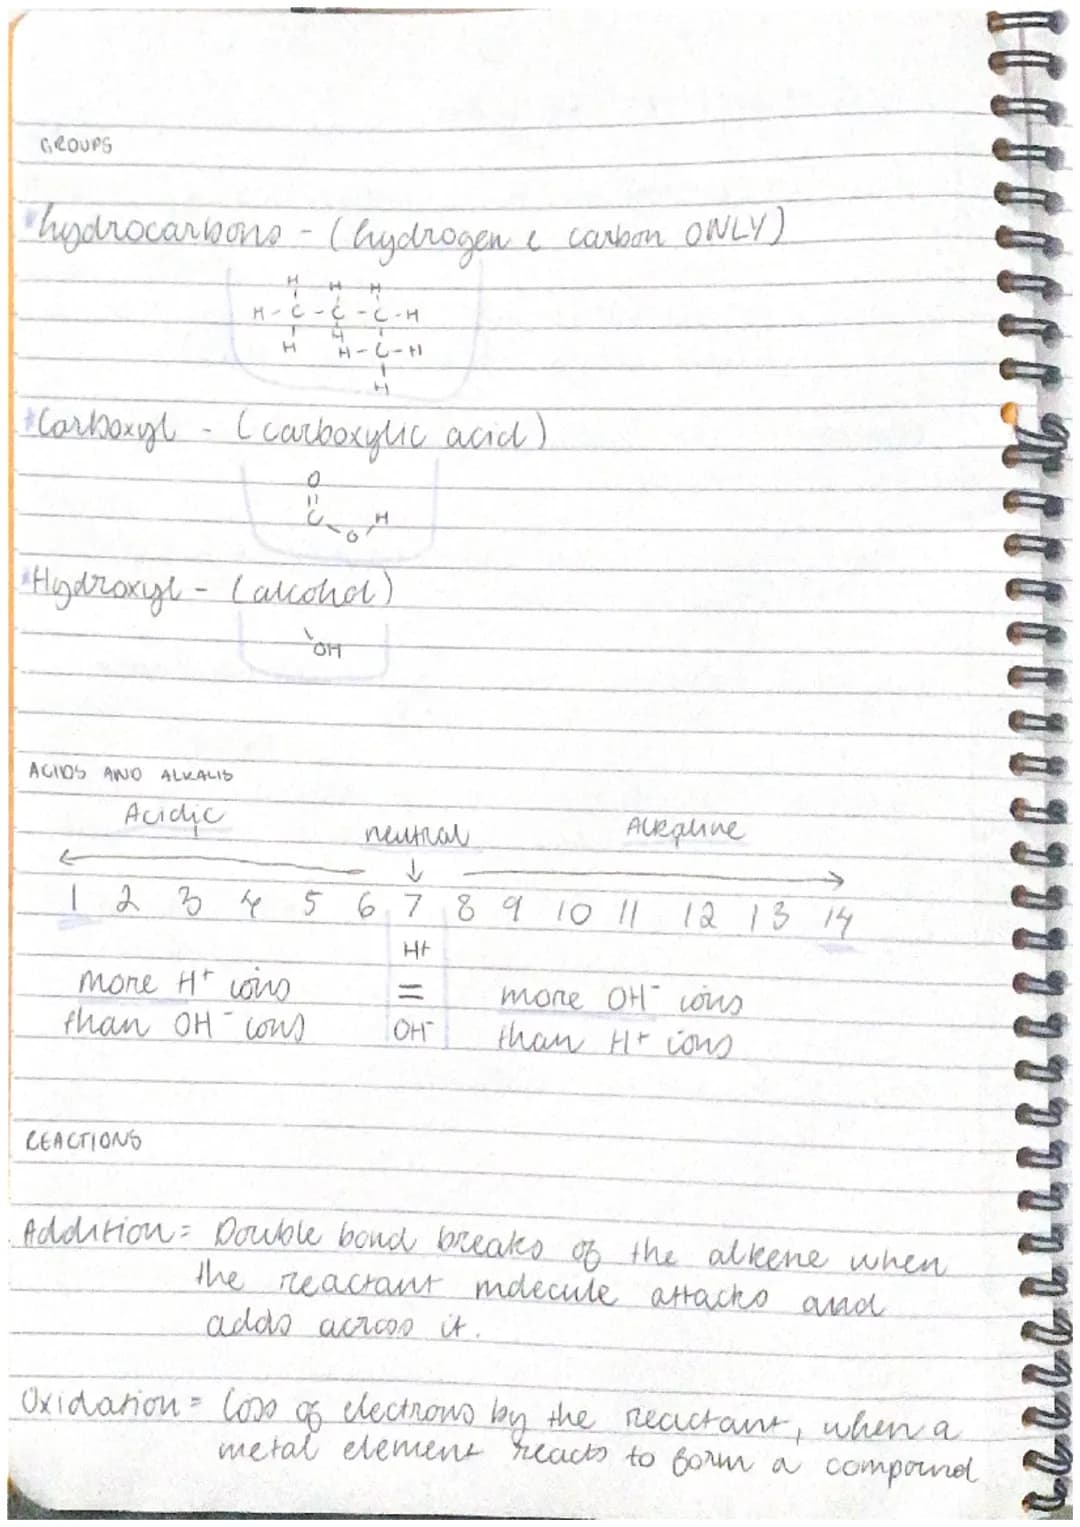 GROUPS
hydrocarbons - (hydrogen & carbon ONLY)
H H H
H-C-C-C-H
H H H-C-H
H
Carboxyl - (carboxylic acid)
O
C H
O
Hydroxyl - (alcohol)
OH
ACIDS AND ALKALIS
Acidic neutral Alkaline
1 2 3 4 5 6 7 8 9 10 11 12 13 14
H+
more H+ ions = more OH- ions
than OH- ions OH- than H+ ions
REACTIONS
Addition = Double bond breaks of the alkene when
the reactant molecule attacks and
adds across it.
Oxidation = loss of electrons by the reactant, when a
metal element reacts to form a compound